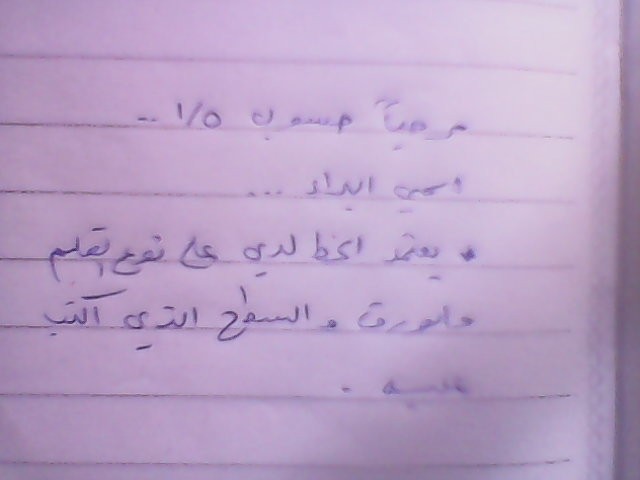 مرحباً حسوب I/O ..
اسمي البراء ...
• يعتمد الخط لدي على نوع القلم
والورق والسطح الذي أكتب
عليه .